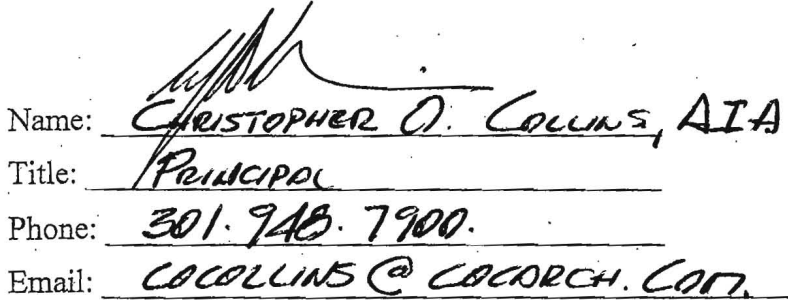 Name: CHRISTOPHER O. COLLINS, AIA
Title: PRINCIPAL
Phone: 301.948.7900.
Email: COCOLLINS @ COCARCH.COM.